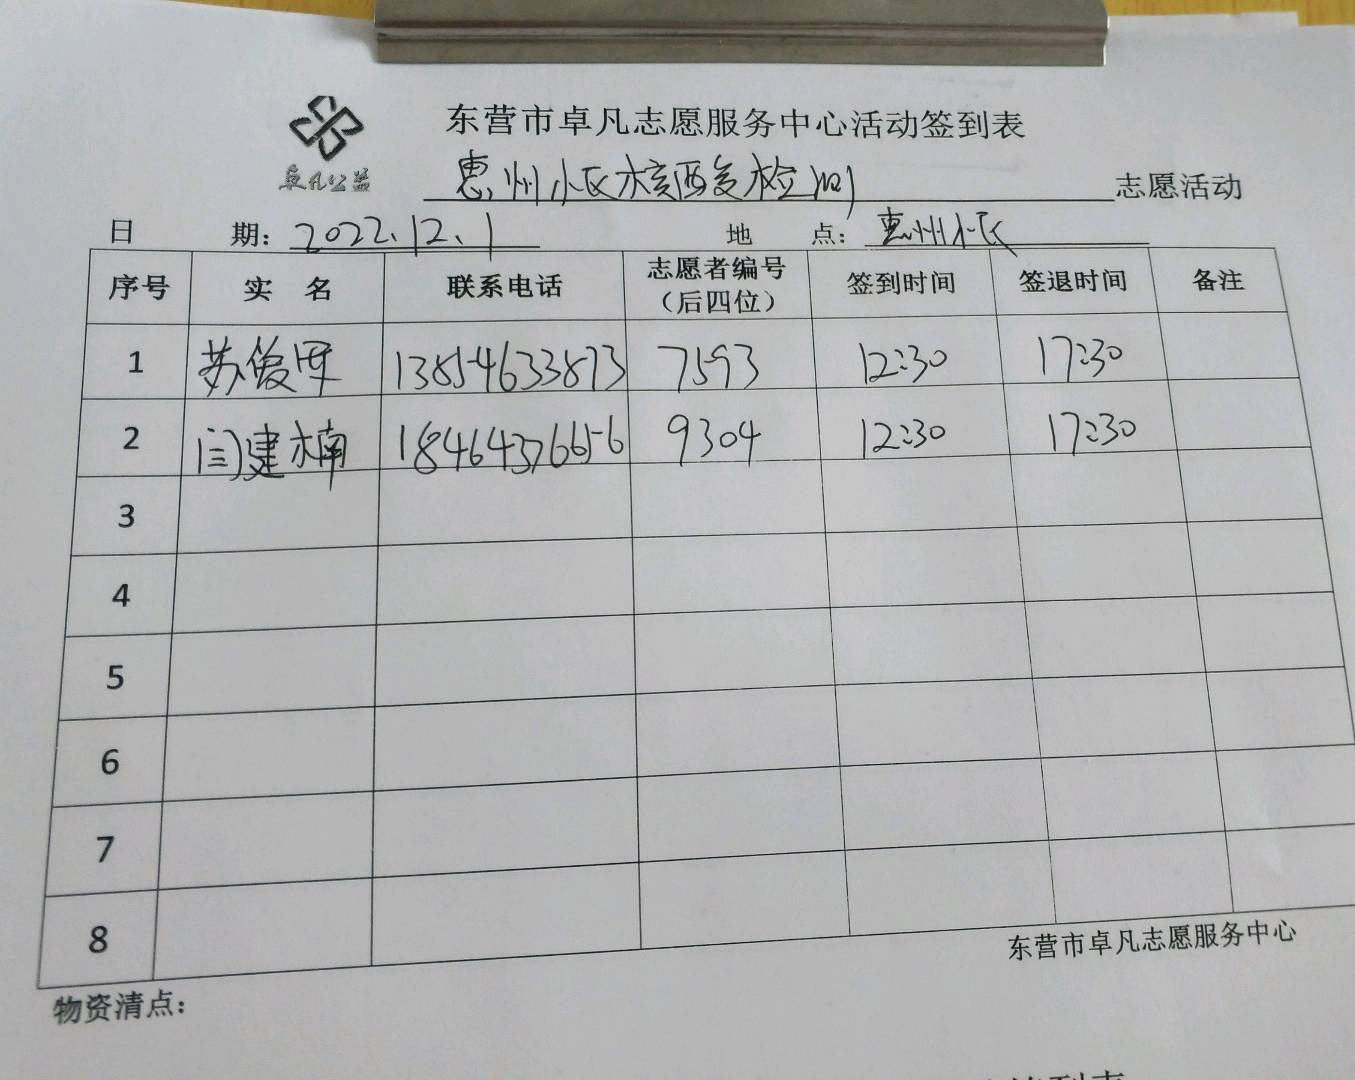 东营市卓凡志愿服务中心活动签到表
卓凡公益
惠州小区核酸检测志愿活动
日 期：2022.12.1 地 点：惠州小区
序号 实 名 联系电话 志愿者编号（后四位） 签到时间 签退时间 备注
1 苏俊军 13854633873 7593 12:30 17:30
2 闫建楠 18464376656 9304 12:30 17:30
3
4
5
6
7
8
东营市卓凡志愿服务中心
物资清点：